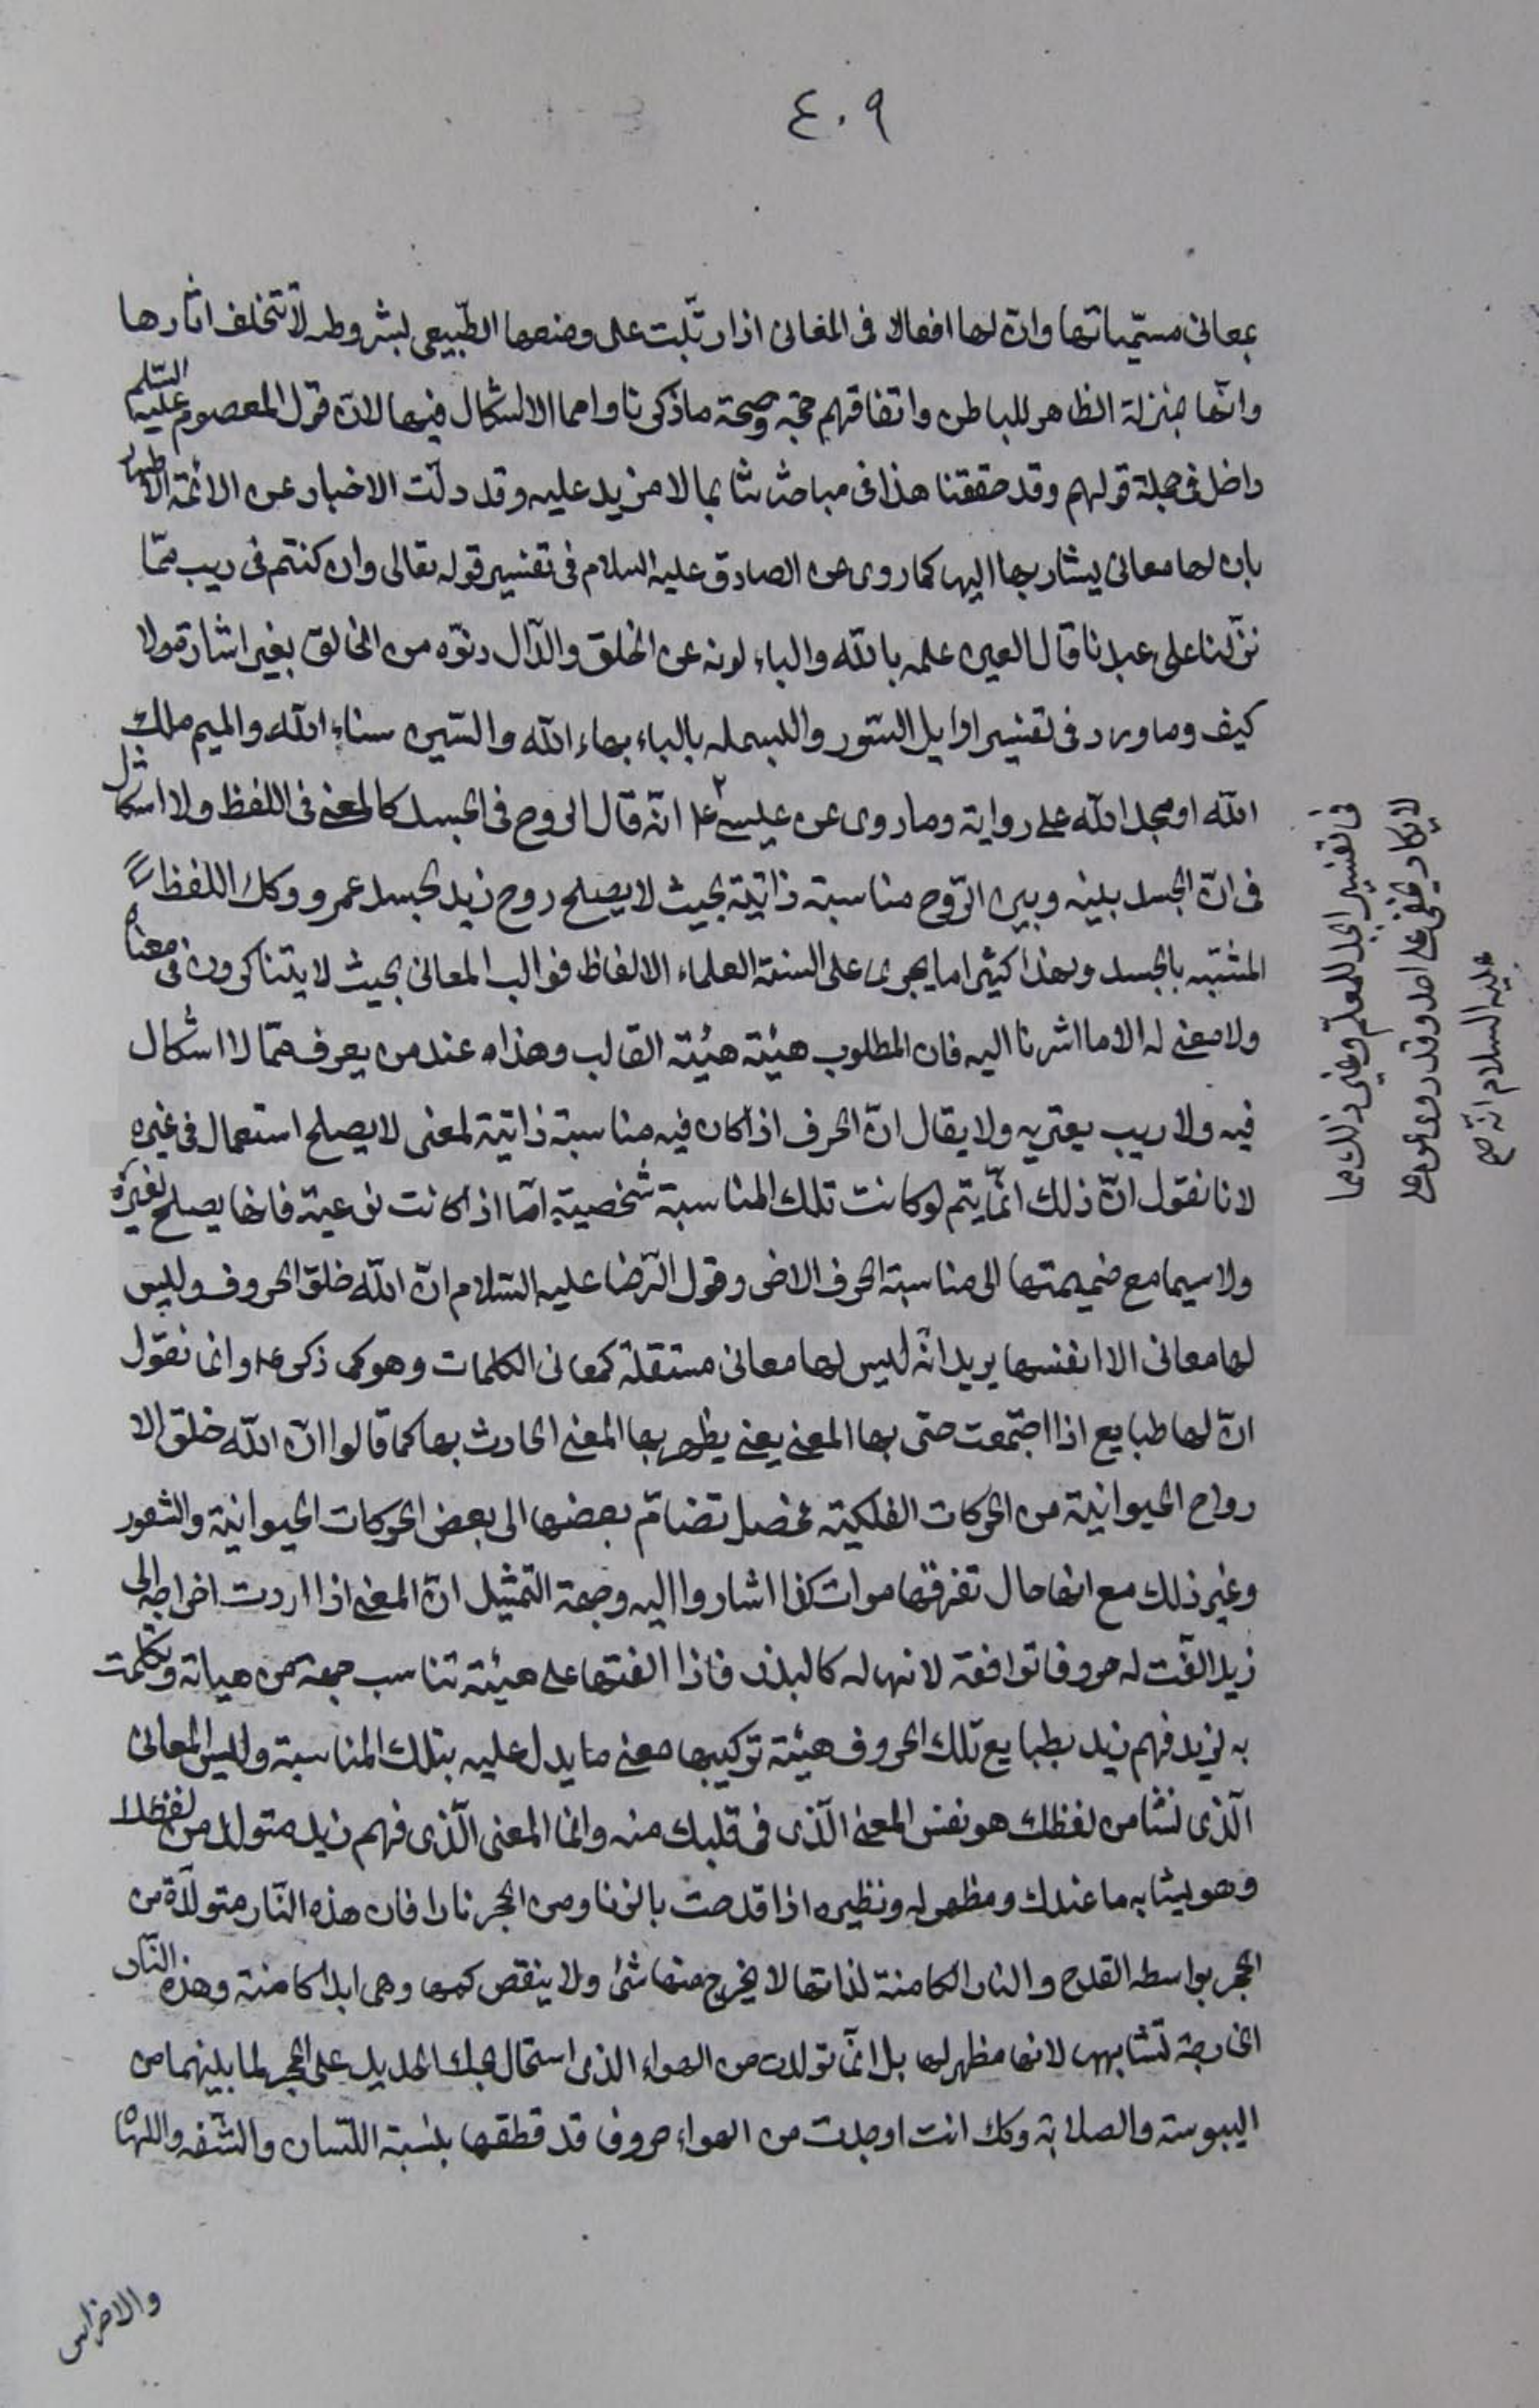 ٤٠٩
بمعانى مسمّياتها وان لها افعالا فى المعانى اذا رتّبت على وضعها الطّبيعى بشروطه لا تتخلف اثارها
وانّها بمنزلة الظاهر للباطن واتفاقهم حجّة وصحة ما ذكرنا واما الاشكال فيها لان قول المعصوم عليه السّلم
داخل فى جملة قولهم وقد حققنا هذا فى مباحثاتنا بما لا مزيد عليه وقد دلّت الاخبار عن الائمّة الاطهار
بان لها معانى يشار بها اليها كما روى عن الصادق عليه السلام فى تفسير قوله تعالى وان كنتم فى ريب ممّا
نزّلنا على عبدنا قال العين علمه بالله والباء بونه عن الخلق والدّال دنوّه من الخالق بغير اشارة ولا
كيف وما ورد فى تفسير اوايل السّور والبسمله بالباء بهاء الله والسّين سناء الله والميم ملك
الله او مجد الله على رواية وما روى عن عيسى ع انّه قال الروح فى الجسد كالمعنى فى اللفظ ولا اشكال
فى انّ الجسد بينه وبين الرّوح مناسبة ذاتيّة بحيث لا يصلح روح زيد لجسد عمرو وكك اللفظ
المشبّه بالجسد ولهذا كثيرا ما يجرى على السنة العلماء الالفاظ قوالب المعانى بحيث لا يتناكرون فى معناه
ولا معنى له الا ما اشرنا اليه فان المطلوب هيئة هيئة القالب وهذا عند من يعرف ممّا لا اشكال
فيه ولا ريب يعتريه ولا يقال انّ الحرف اذا كان فيه مناسبة ذاتيّة لمعنى لا يصلح استعمال فى غيره
لانا نقول انّ ذلك انّما يتم لو كانت تلك المناسبة شخصيّة امّا اذا كانت نوعية فانها يصلح لغيره
ولا سيما مع ضميمتها الى مناسبة الحرف الاخر وقول الرّضا عليه السّلام انّ الله خلق الحروف وليس
لها معانى الا انفسها يريد انّه ليس لها معانى مستقلة كمعانى الكلمات وهو كما ذكر ع وانما نقول
انّ لها طبايع اذا اجتمعت حتى بها المعنى يعنى يظهر بها المعنى الحادث بها كما قالوا انّ الله خلق الا
رواح الحيوانيّة من الحركات الفلكيّة فحصل بتضامّ بعضها الى بعض الحركات الحيوانيّة والشعور
وغير ذلك مع انها حال تفرقها موات كذا اشاروا اليه وجهة التمثيل انّ المعنى اذا اردت اخراجه الى
زيد الّفت له حروفا توافقه لانها له كالبدن فاذا الفتها على هيئة تناسب جهة من هياته وتكلمت
به لزيد فهم زيد بطبايع تلك الحروف هيئة تركيبها معنى ما يدل عليه بتلك المناسبة وليس المعانى
الّذى نشا من لفظك هو نفس المعنى الّذى فى قلبك منه وانما المعنى الّذى فهم زيد متولد من لفظك
وهو يشابه ما عندك ومظهر له ونظيره اذا قدحت بالزناد من الحجر نارا فان هذه النّار متولّدة من
الحجر بواسطه القدح والنار الكامنة لذاتها لا يخرج منها شئ ولا ينقص كمها وهى ابدا كامنة وهذه النّار
الخارجة تشابهها لانها مظهر لها بل انّما تولدت من الهواء الذى استحال بحك الحديد على الحجر لما بينهما من
اليبوسة والصلابة وكك انت اوجدت من الهواء حروف قد قطعها بنسبة اللّسان والشّفه واللهاة
والاضراس
فى تفسير ابجد للمعلّم وغير ذلك مما
لا يكاد يخفى على احد وقد روى عن على
عليه السلام انّه